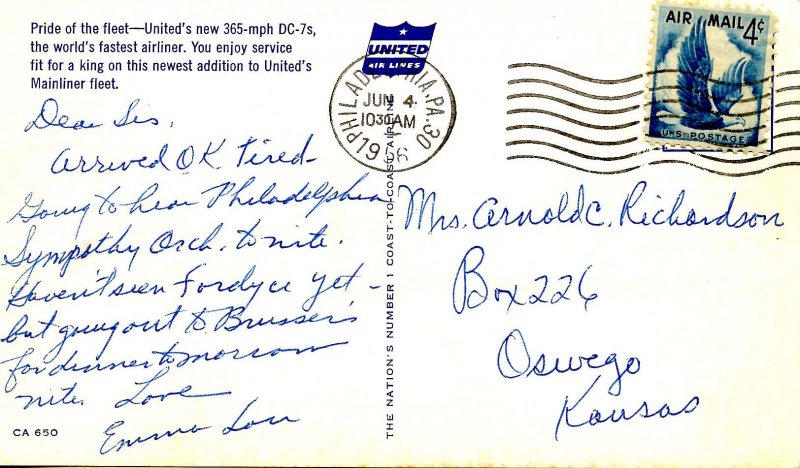 Pride of the fleet—United's new 365-mph DC-7s,
the world's fastest airliner. You enjoy service
fit for a king on this newest addition to United's
Mainliner fleet.
UNITED
AIR LINES
PHILADELPHIA, PA. 30
JUN 4
1030 AM
1956
AIR MAIL 4¢
U.S. POSTAGE
Dear Sis,
Arrived OK Tired-
Going to hear Philadelphia
Sympathy Orch. to nite.
Haven't seen Fordyce yet -
but going out to Brusser's
for dinner tomorrow
nite. Love
Emma Lou
CA 650
THE NATION'S NUMBER 1 COAST-TO-COAST AIRLINE
Mrs. Arnold C. Richardson
Box 226
Oswego
Kansas